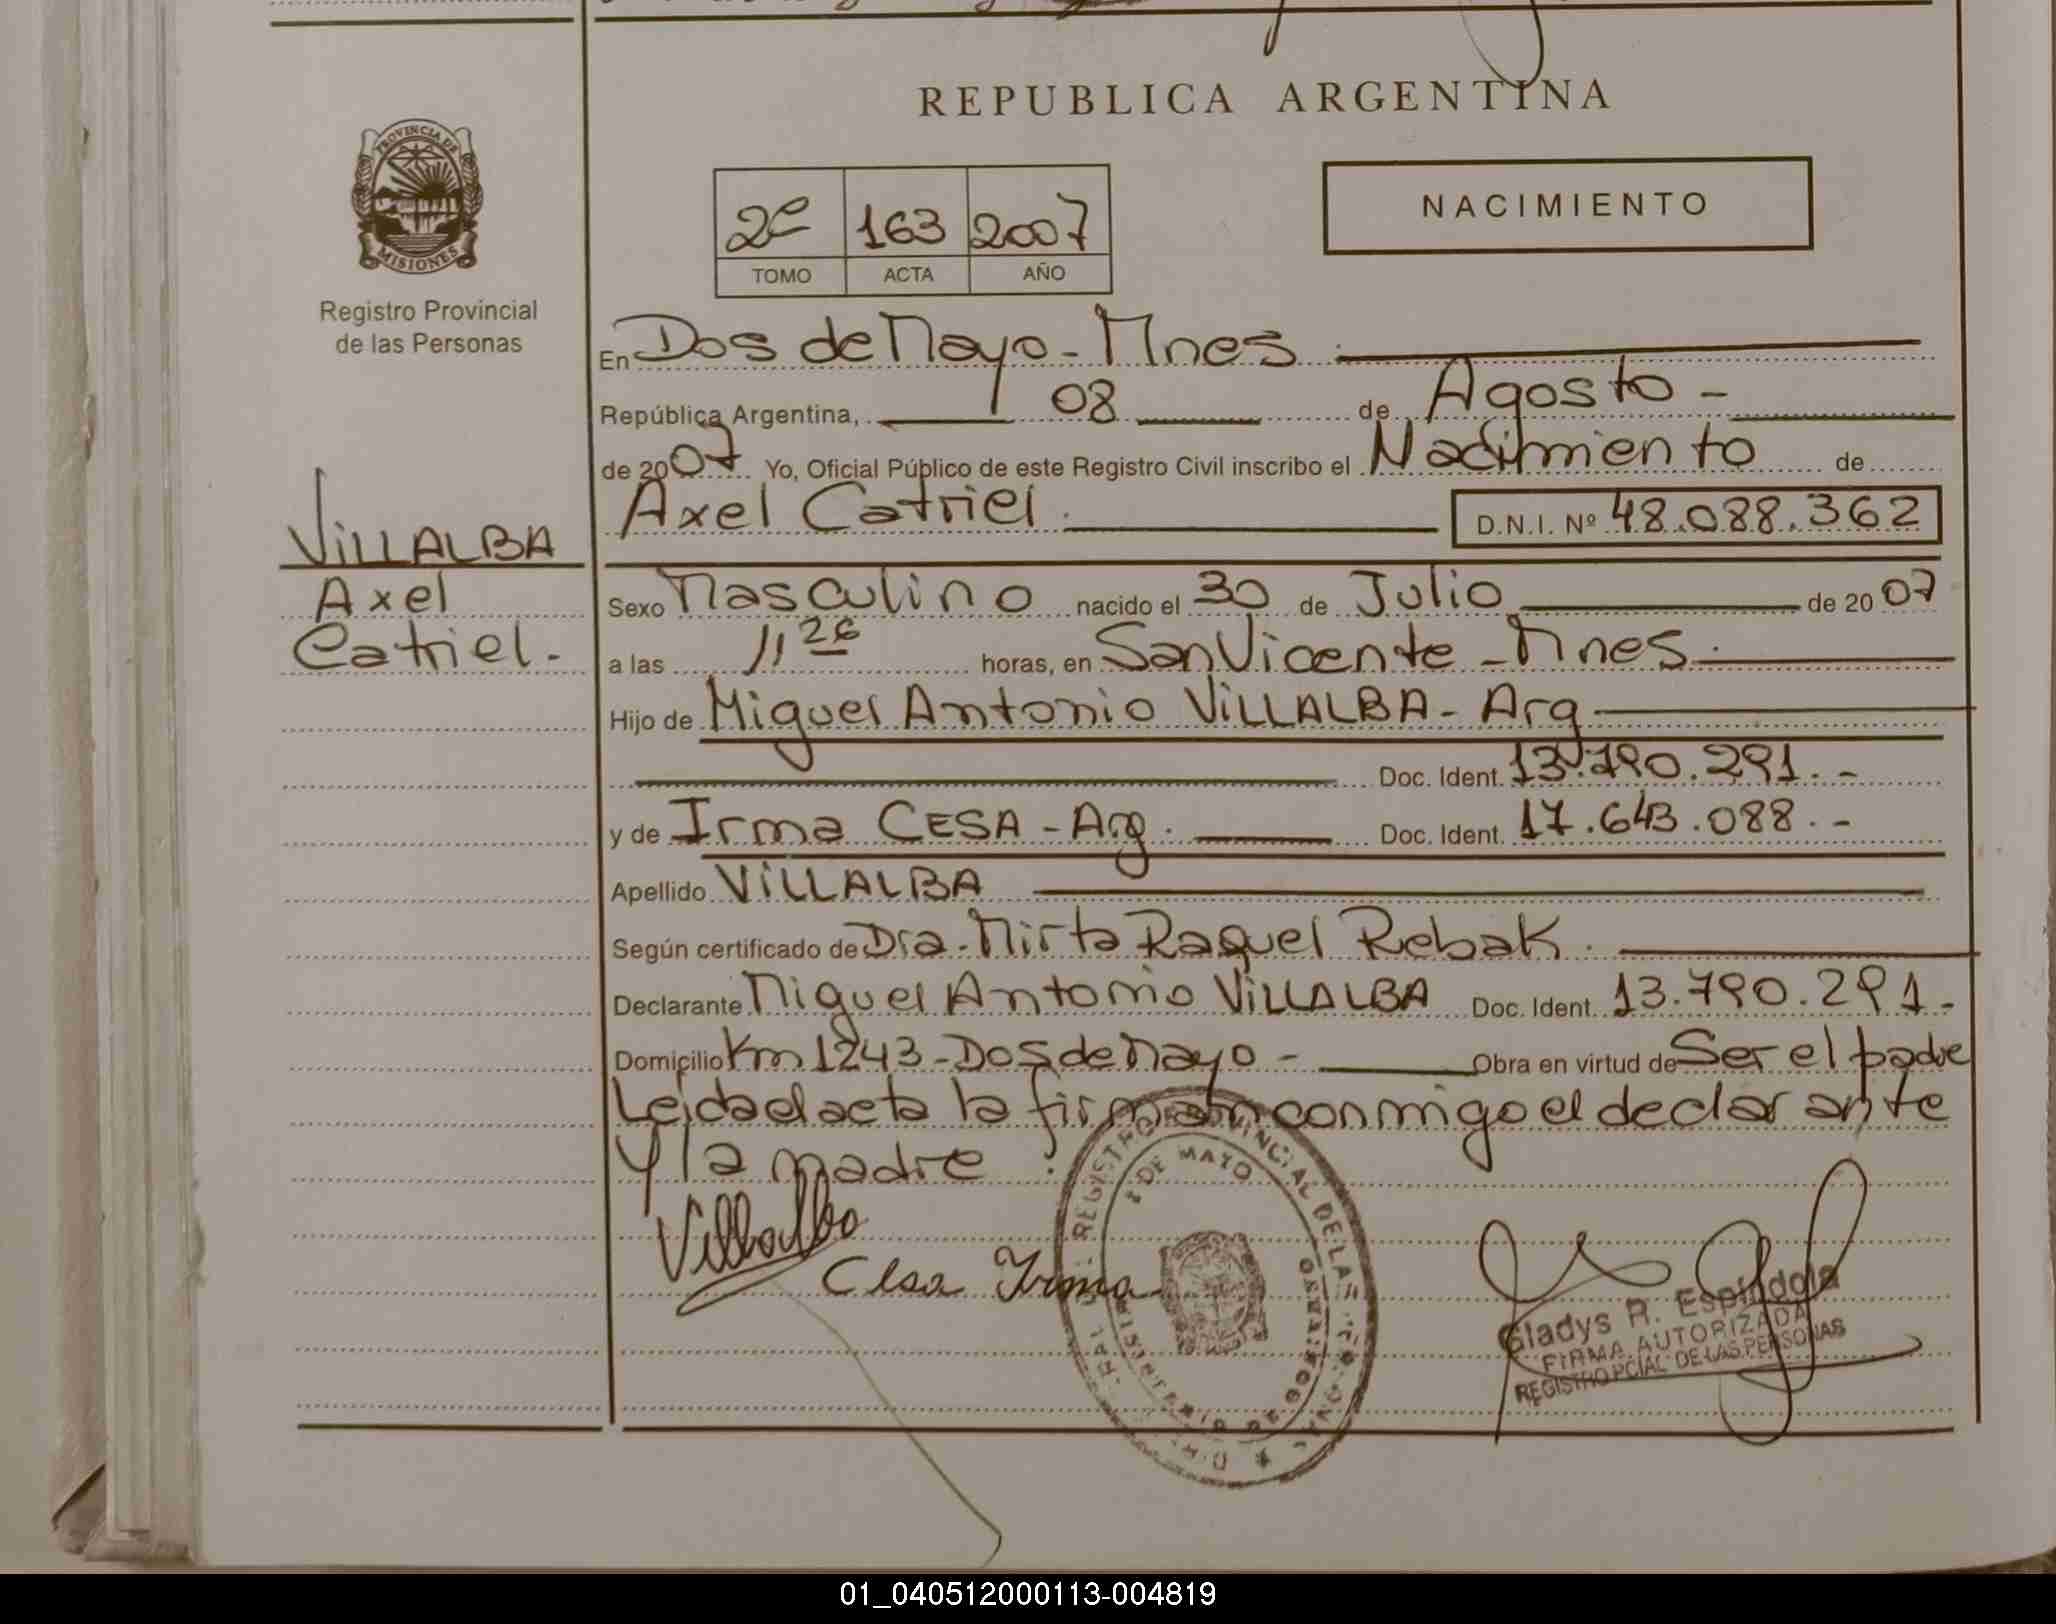 REPUBLICA ARGENTINA
PROVINCIA DE
MISIONES
Registro Provincial
de las Personas
2º 163 2007
TOMO ACTA AÑO
NACIMIENTO
En Dos de Mayo - Mnes.
República Argentina, 08 de Agosto -
de 2007 Yo, Oficial Público de este Registro Civil inscribo el Nacimiento de
Axel Catriel. D.N.I. Nº 48.088.362
VILLALBA
Axel
Catriel.-
Sexo Masculino nacido el 30 de Julio de 2007
a las 11 26 horas, en San Vicente - Mnes.
Hijo de Miguel Antonio VILLALBA - Arg
Doc. Ident. 13.790.291.-
y de Irma CESA - Arg. Doc. Ident. 17.643.088.-
Apellido VILLALBA
Según certificado de Dra. Mirta Raquel Rebak.
Declarante Miguel Antonio VILLALBA Doc. Ident. 13.790.291.-
Domicilio Km 1243 - Dos de Mayo - Obra en virtud de Ser el padre
Leida el acta la firman conmigo el declarante
y la madre.
Villalba
Cesa Irma
REGISTRO PROVINCIAL DE LAS
2 DE MAYO
MINISTERIO DE GOBIERNO
Gladys R. Espindola
FIRMA AUTORIZADA
REGISTRO PCIAL DE LAS PERSONAS
01_040512000113-004819